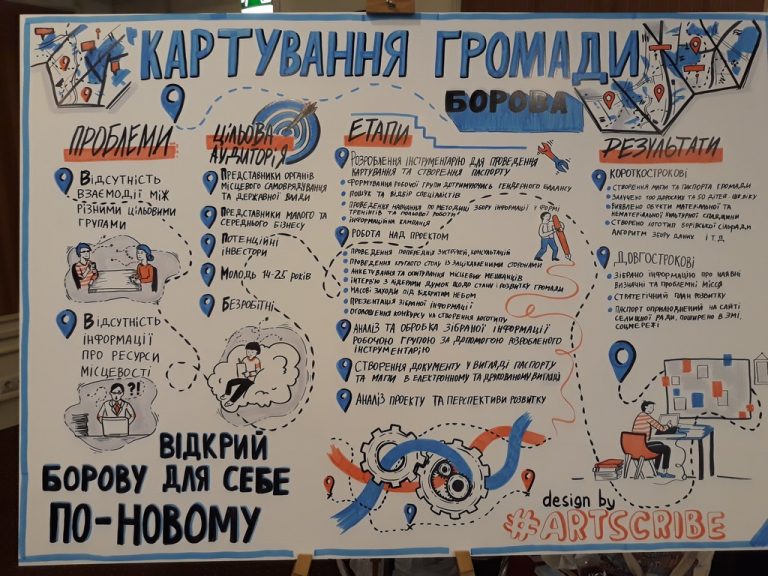 КАРТУВАННЯ ГРОМАДИ
БОРОВА
ПРОБЛЕМИ
ВІДСУТНІСТЬ
ВЗАЄМОДІЇ МІЖ
РІЗНИМИ ЦІЛЬОВИМИ
ГРУПАМИ
ВІДСУТНІСТЬ
ІНФОРМАЦІЇ
ПРО РЕСУРСИ
МІСЦЕВОСТІ
?!
ЦІЛЬОВА
АУДИТОРІЯ
ПРЕДСТАВНИКИ ОРГАНІВ
МІСЦЕВОГО САМОВРЯДУВАННЯ
ТА ДЕРЖАВНОЇ ВЛАДИ
ПРЕДСТАВНИКИ МАЛОГО ТА
СЕРЕДНЬОГО БІЗНЕСУ
ПОТЕНЦІЙНІ
ІНВЕСТОРИ
МОЛОДЬ 14-25 РОКІВ
БЕЗРОБІТНІ
ЕТАПИ
РОЗРОБЛЕННЯ ІНСТРУМЕНТАРІЮ ДЛЯ ПРОВЕДЕННЯ
КАРТУВАННЯ ТА СТВОРЕННЯ ПАСПОРТУ
ФОРМУВАННЯ РОБОЧОЇ ГРУПИ ДОТРИМУЮЧИСЬ ГЕНДЕРНОГО БАЛАНСУ
ПОШУК ТА ВІДБІР СПЕЦІАЛІСТІВ
ПРОВЕДЕННЯ НАВЧАННЯ ПО МЕТОДИЦІ ЗБОРУ ІНФОРМАЦІЇ У ФОРМІ
ТРЕНІНГІВ ТА ПОЛЬОВОЇ РОБОТИ
ІНФОРМАЦІЙНА КАМПАНІЯ
РОБОТА НАД ПРОЕКТОМ
ПРОВЕДЕННЯ ПОПЕРЕДНІХ ЗУСТРІЧЕЙ, КОНСУЛЬТАЦІЙ
ПРОВЕДЕННЯ КРУГЛОГО СТОЛУ ІЗ ЗАЦІКАВЛЕНИМИ СТОРОНАМИ
АНКЕТУВАННЯ ТА ОПИТУВАННЯ МІСЦЕВИХ МЕШКАНЦІВ
ІНТЕРВ'Ю З ЛІДЕРАМИ ДУМОК ЩОДО СТАНУ І РОЗВИТКУ ГРОМАДИ
МАСОВІ ЗАХОДИ ПІД ВІДКРИТИМ НЕБОМ
ПРЕЗЕНТАЦІЯ ЗІБРАНОЇ ІНФОРМАЦІЇ
ОГОЛОШЕННЯ КОНКУРСУ НА СТВОРЕННЯ ЛОГОТИПУ
АНАЛІЗ ТА ОБРОБКА ЗІБРАНОЇ ІНФОРМАЦІЇ
РОБОЧОЮ ГРУПОЮ ЗА ДОПОМОГОЮ РОЗРОБЛЕНОГО
ІНСТРУМЕНТАРІЮ
СТВОРЕННЯ ДОКУМЕНТУ У ВИГЛЯДІ ПАСПОРТУ
ТА МАПИ В ЕЛЕКТРОННОМУ ТА ДРУКОВАНОМУ ВИГЛЯДІ
АНАЛІЗ ПРОЕКТУ ТА ПЕРСПЕКТИВИ РОЗВИТКУ
РЕЗУЛЬТАТИ
КОРОТКОСТРОКОВІ
СТВОРЕННЯ МАПИ ТА ПАСПОРТА ГРОМАДИ
ЗАЛУЧЕНО 100 ДОРОСЛИХ ТА 50 ДІТЕЙ ШК. ВІКУ
ВИЯВЛЕНО ОБ'ЄКТИ МАТЕРІАЛЬНОЇ ТА
НЕМАТЕРІАЛЬНОЇ КУЛЬТУРНОЇ СПАДЩИНИ
СТВОРЕНО ЛОГОТИП БОРІВСЬКОЇ СІЛЬРАДИ
АЛГОРИТМ ЗБОРУ ДАНИХ І Т.Д.
ДОВГОСТРОКОВІ
ЗІБРАНО ІНФОРМАЦІЮ ПРО НАЯВНІ
ВИЗНАЧНІ ТА ПРОБЛЕМНІ МІСЦЯ
СТРАТЕГІЧНИЙ ПЛАН РОЗВИТКУ
ПАСПОРТ ОПРИЛЮДНЕНИЙ НА САЙТІ
СЕЛИЩНОЇ РАДИ, ПОШИРЕНО В ЗМІ,
СОЦМЕРЕЖІ
ВІДКРИЙ
БОРОВУ ДЛЯ СЕБЕ
ПО-НОВОМУ
design by
#ARTSCRIBE